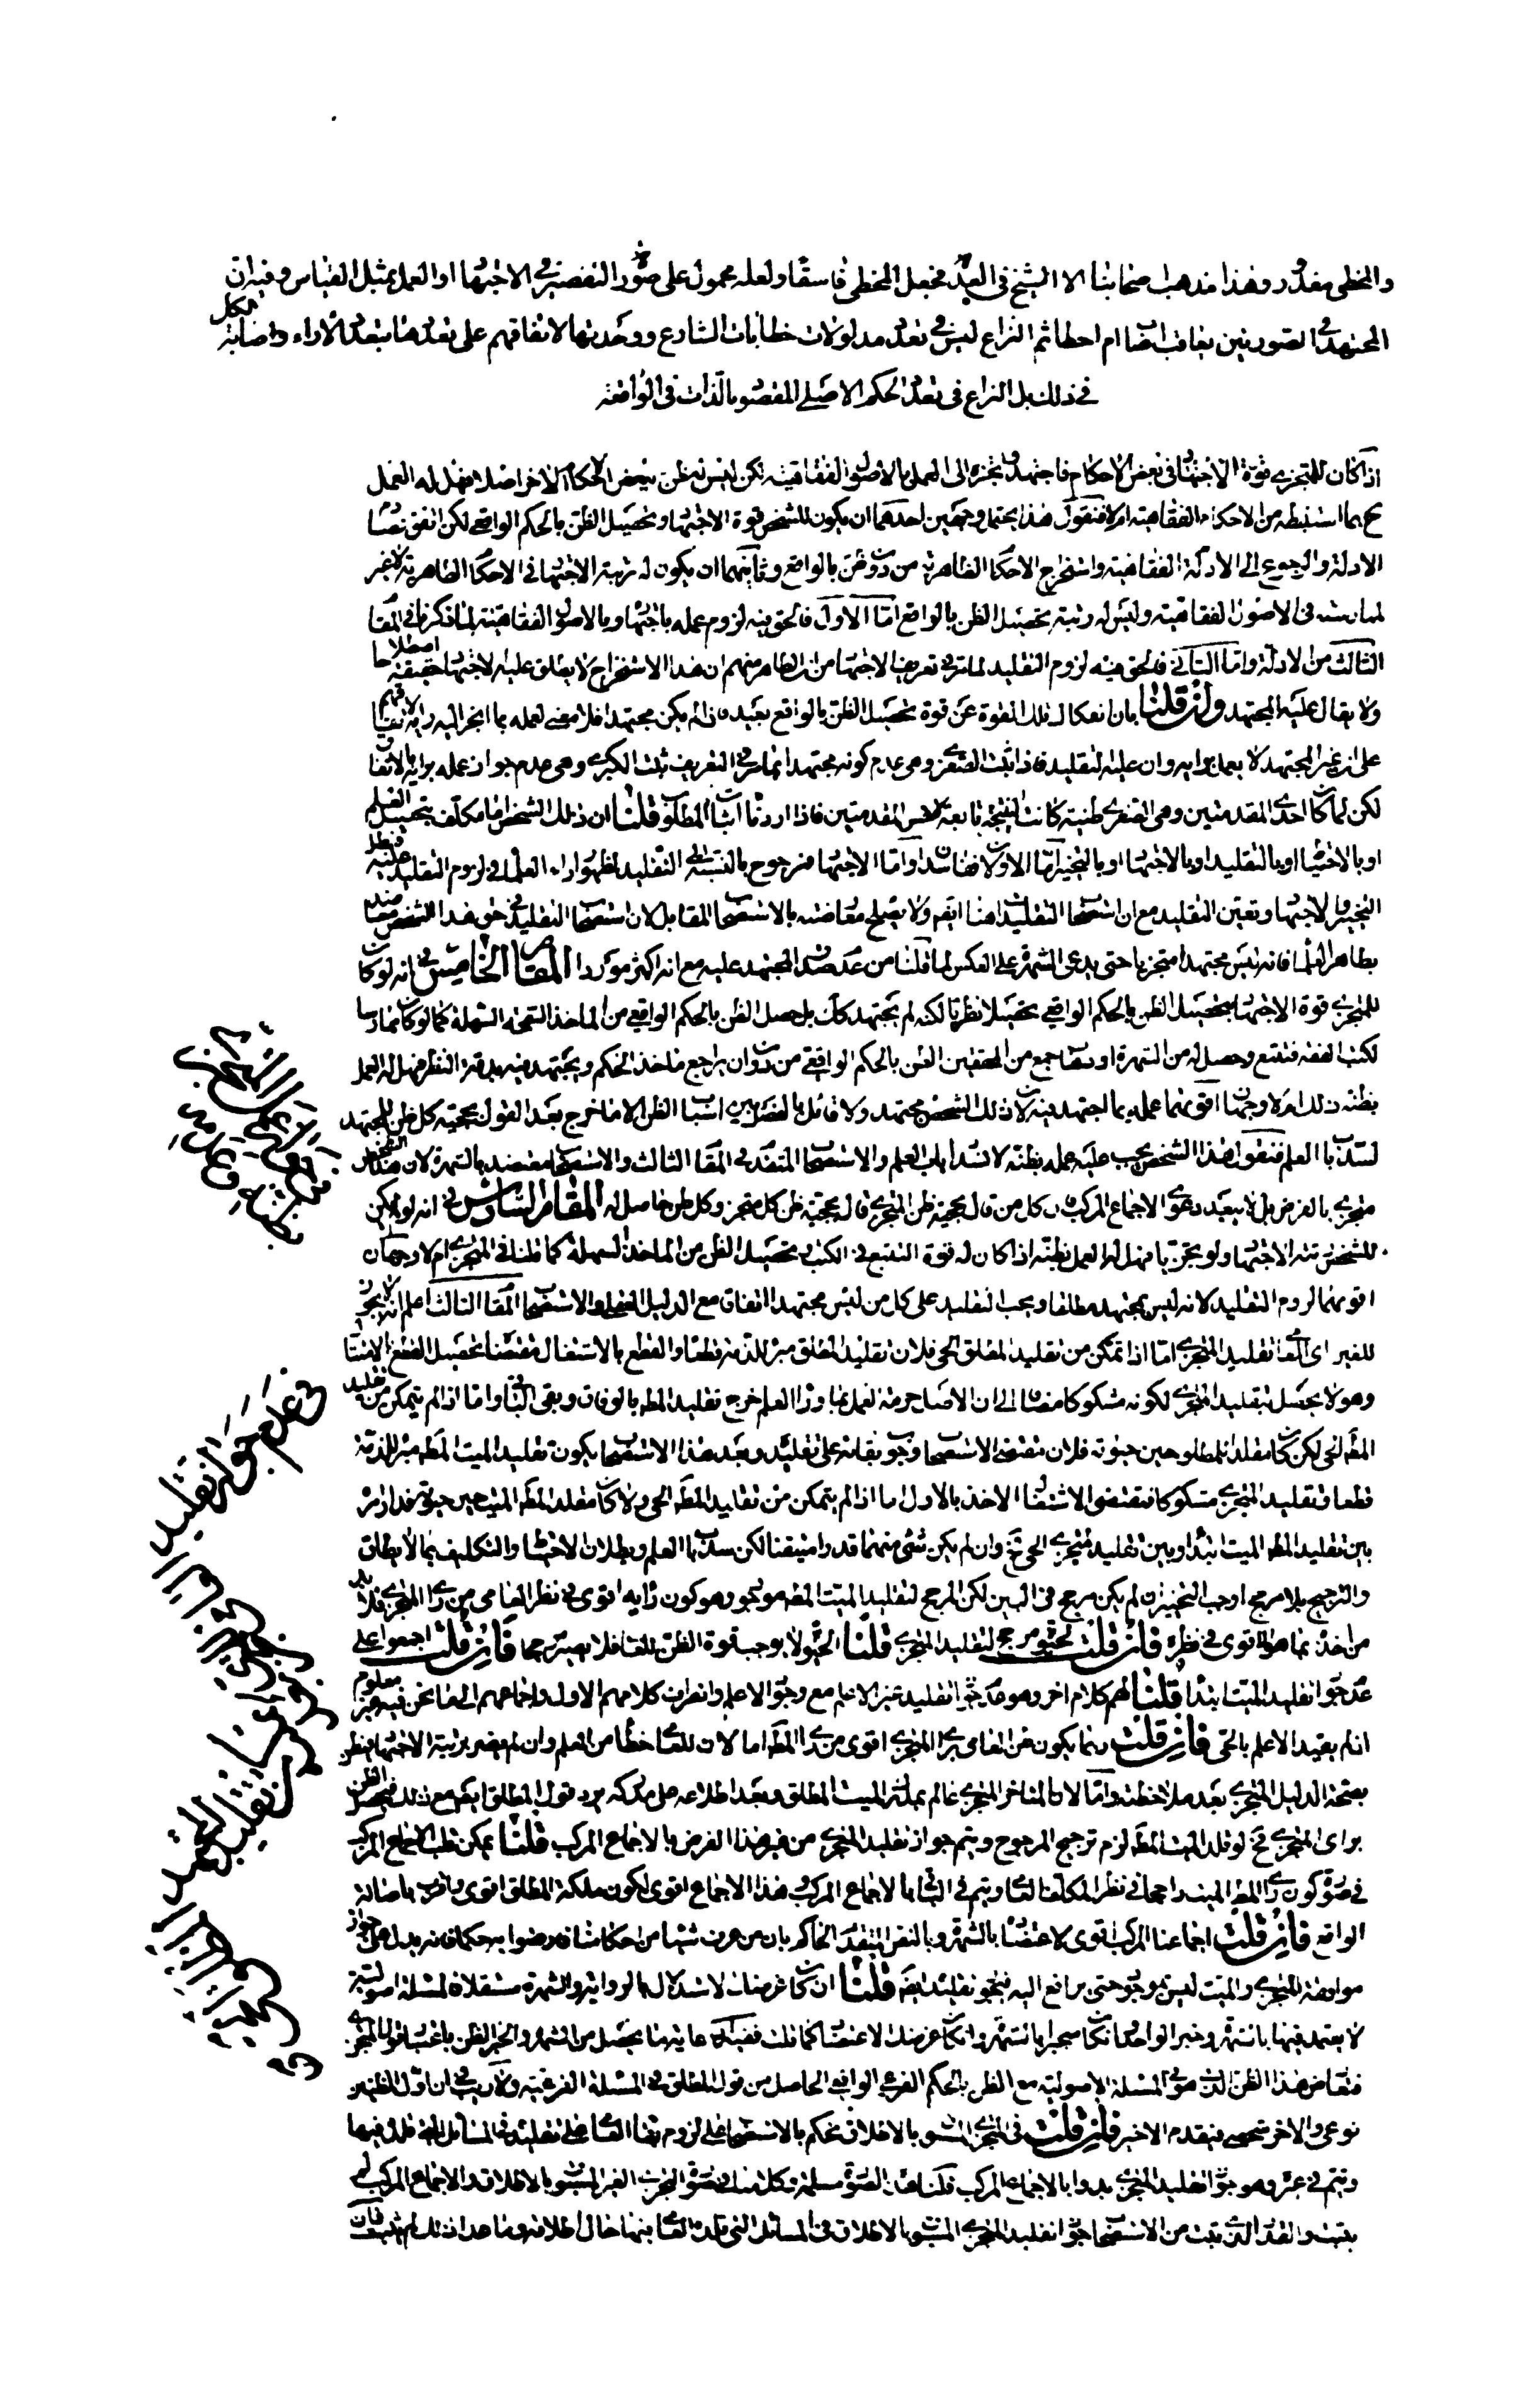 والمخطى معذور وهذا مذهب اصحابنا الا الشيخ فى العدة فجعل المخطى فاسقا ولعله محمول على صورة التقصير فى الاجتهاد او العمل بمثل القياس وفيه ان
المجتهد فى الصورتين يعاقب اصاب ام اخطا ثم النزاع ليس فى تعدد مدلولات خطابات الشارع ووحدتها لاتفاقهم على تعددها بتعدد الاراء واصابة الكل
فى ذلك بل النزاع فى تعدد الحكم الاصلى المقصود بالذات فى الواقعة
اذا كان للمتجزى قوة الاجتهاد فى بعض الاحكام فاجتهد وانجره الى العمل بالاصول الفقاهتية لكن ليس له ظن ببعض الاحكام الاخر اصلا فهل له العمل
ح بما استنبطه من الاحكام الفقاهتية ام لا فنقول هذا يحتمل وجهين احدهما ان يكون للشخص قوة الاجتهاد وتحصيل الظن بالحكم الواقعى لكن اتفق
الادلة والرجوع الى الادلة الفقاهتية واستخراج الاحكام الظاهرية من دون ظن بالواقع وثانيهما ان يكون له مرتبة الاجتهاد فى الاحكام الظاهرية لا غير
فى الاصول الفقاهتية وليس له رتبة تحصيل الظن بالواقع اما الاول فالحق فيه لزوم عمله باجتهاده وبالاصول الفقاهتية لما ذكرنا فى المقام
الثالث من الادلة واما الثانى فالحق فيه لزوم التقليد لما مر فى تعريف الاجتهاد من ان الظاهر منهم ان هذا الاستخراج لا يطلق عليه الاجتهاد حقيقة اصطلاحا
ولا يقال عليه المجتهد وان قلنا بان انفكاك تلك القوة عن قوة تحصيل الظن بالواقع بعيد فاذا لم يكن مجتهدا فلا معنى لعمله بما انجر اليه رايه لاتفاقهم
على ان غير المجتهد لا يعمل برايه وان عليه التقليد فاذا ثبت الصغرى وهى عدم كونه مجتهدا لما مر فى التعريف ثبت الكبرى وهى عدم جواز عمله برايه بالاتفاق
لكن لما كان احدى المقدمتين وهى الصغرى ظنية كانت النتيجة تابعة لاخس المقدمتين فاذا اردنا اثبات المطلوب قلنا ان ذلك الشخص اما مكلف بتحصيل العلم
او بالاحتياط او بالتقليد او بالاجتهاد او بالتخيير اما الاولان ففاسدان واما الاجتهاد فمرجوح بالنسبة الى التقليد لظهور اراء العلماء فى لزوم التقليد
التخيير والاجتهاد وتعين التقليد مع ان استصحاب التقليد هنا ايضا ولا يصلح معارضته بالاستصحاب المقابل لان استصحاب التقليد فى حق هذا الشخص معتضد
بظاهر العلماء فانه ليس مجتهدا متجزيا حتى يدعى الشهرة على العكس لما قلنا من عدم صدق المجتهد عليه مع انه اكثر موردا المقام الخامس فى انه لو كان
للمتجزى قوة الاجتهاد لتحصيل الظن بالحكم الواقعى تحصيلا نظريا لكنه لم يجتهد كذلك بل حصل الظن بالحكم الواقعى من الماخذ السمحة السهلة كما لو كان ممارسا
لكتب الفقه فتتبع وحصل له من الشهرة او مصاحبة جمع من المحققين الظن بالحكم الواقعى من دون ان يراجع ماخذ الحكم ويجتهد فيه بدقة النظر فهل له العمل
بظنه ذلك ام لا وجهان اقويهما عمله بما اجتهد فيه لان ذلك الشخص مجتهد ولا قائل بالفصل بين اسباب الظن الا ما خرج بعد القول بحجية كل ظن للمجتهد
لسد باب العلم فنقول هذا الشخص يجب عليه عمله بظنه لانسداد باب العلم والاستصحاب المتقدم فى المقام الثالث والاستصحاب معتضد بالشهرة لان هذا الشخص
متجزى بالفرض بل لا يبعد دعوى الاجماع المركب لان كل من قال بحجية ظن المتجزى قال بحجية ظن كل متجز وكل ظن حاصل له المقام السادس فى انه لو لم يكن
للشخص رتبة الاجتهاد ولو تجزيا فهل له العمل بظنه اذا كان له قوة التتبع فى الكتب وتحصيل الظن من الماخذ السهلة كما قلنا فى المتجزى ام لا وجهان
اقويهما لزوم التقليد لانه ليس بمجتهد مطلقا ويجب التقليد على كل من ليس مجتهدا اتفاقا مع الدليل العقلى والاستصحاب المقام الثالث اعلم انه لا يجوز
للغير اى العامى تقليد المتجزى اما اذا تمكن من تقليد المطلق الحى فلان تقليد المطلق مبرء للذمة قطعا والقطع بالاشتغال مقتض لتحصيل القطع بالامتثال
وهو لا يحصل بتقليد المتجزى لكونه مشكوكا مضافا الى ان الاصل حرمة العمل بما وراء العلم خرج تقليد المطلق بالوفاق وبقى الباقى واما اذا لم يتمكن من تقليد
المطلق الحى لكن كان مقلدا للمطلق حين حيوته فلان مقتضى الاستصحاب وجوب بقائه على تقليده وبعد هذا الاستصحاب يكون تقليد الميت المطلق مبرء للذمة
قطعا وتقليد المتجزى مشكوكا فمقتضى الاشتغال الاخذ بالاول اما اذا لم يتمكن من تقليد المطلق الحى ولا كان مقلد المطلق الميت حين حيوته فدار امره
بين تقليد المطلق الميت ابتداء وبين تقليد متجزى الحى فح وان لم يكن شئ منهما قدرا متيقنا لكن سد باب العلم وبطلان الاحتياط والتكليف بما لا يطاق
والترجيح بلا مرجح اوجب التخيير ان لم يكن مرجح فى البين لكن المرجح لتقليد الميت المطلق موجود وهو كون رايه اقوى فى نظر العامى من راى المتجزى فلا بد
من اخذ ما هو الاقوى فى نظره فان قلت الحيوة مرجح لتقليد المتجزى قلنا الحيوة لا يوجب قوة الظن للعامى فلا يصير مرجحا فان قلت اجمعوا على
عدم جواز تقليد الميت ابتداء قلنا لهم كلام اخر وهو عدم جواز تقليد غير الاعلم مع وجود الاعلم وانصراف كلامهم الاول واجماعهم الى ما نحن فيه غير معلوم
اذ لم يقيد الاعلم بالحى فان قلت ربما يكون ظن العامى براى المتجزى اقوى من راى المطلق اما لان للعامى حظا من العلم وان لم يصر برتبة الاجتهاد فيظن
بصحة الدليل المتجزى بعد ملاحظته واما لان المتاخر المتجزى عالم بملة الميت المطلق وبعد اطلاعه على مدركه يرد قول المطلق ايضا مع ذلك فيحصل الظن
براى المتجزى فح لو قلد الميت المطلق لزم ترجيح المرجوح ويتم جواز تقليد المتجزى من غير هذا الفرض بالاجماع المركب قلنا يمكن قلب الاجماع المركب
فى صورة كون راى المطلق الميت راجحا فى نظر المكلف العامى ويتم فى الباقى بالاجماع المركب وهذا الاجماع اقوى لكون ملكة المطلق اقوى واقرب باصابة
الواقع فان قلت اجماعنا المركب اقوى لاعتضاده بالشهرة وبالنص المتقدم الحاكم بان من عرف شيئا من احكامنا فارضوا به حكما فانه يدل على جواز
مرافعة المتجزى والميت ليس موجودا حتى يرافع اليه فيجوز تقليده ايضا قلنا ان كان غرضك الاستدلال بالرواية والشهرة مستقلا فالمسئلة اصولية
لا يعتمد فيها بالشهرة وخبر الواحد وان كان منجبرا بالشهرة وان كان غرضك الاعتضاد كما قلت ففيه ان غاية ما يحصل من الشهرة والخبر الظن باعتبار قول المتجزى
فتعارض هذا الظن الذى هو فى المسئلة الاصولية مع الظن بالحكم الفرعى الواقعى الحاصل من قول المطلق فى المسئلة الفرعية ولا ريب فى ان اول الظنين
نوعى والاخر شخصى فيقدم الاخير فان قلت فى المتجزى المسبوق بالاطلاق نحكم بالاستصحاب على لزوم بقاء العامى على تقليده فى المسائل التى قلده فيها
ويتم فى غيره وهو جواز تقليد المتجزى بدوا بالاجماع المركب قلنا هذه الصورة مسلمة وكلامنا فى صورة المتجزى الغير المسبوق بالاطلاق والاجماع المركب لم
يثبت والقدر الذى ثبت من الاستصحاب جواز تقليد المتجزى المسبوق بالاطلاق فى المسائل التى قلده العامى فيها حال اطلاقه وما عدا ذلك لم يثبت فان